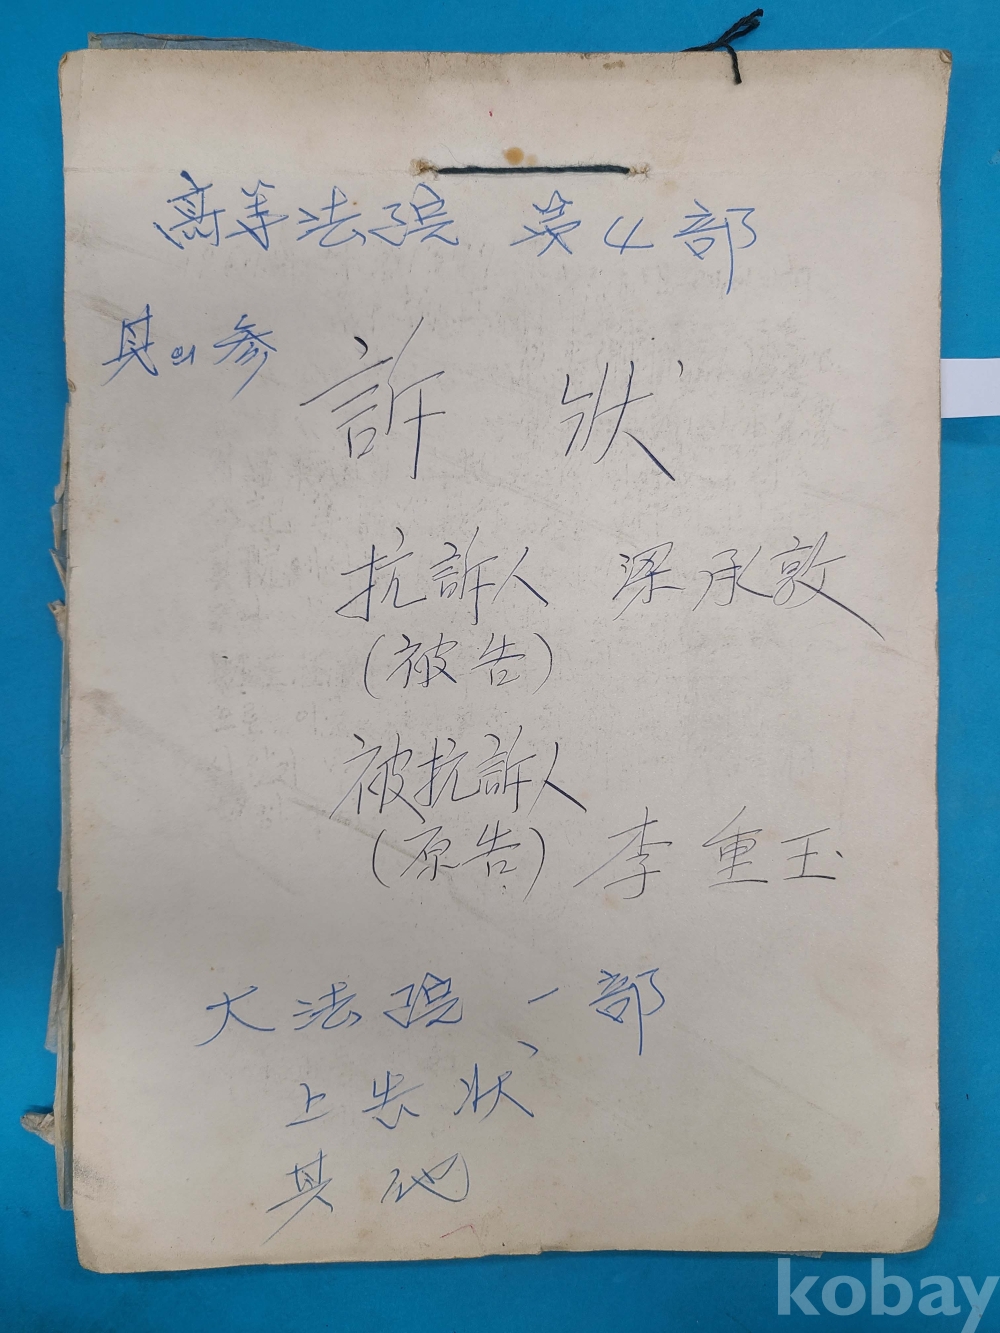 高等法院 第4部
其의參
訴 狀
抗訴人 梁承敦
(被告)
被抗訴人
(原告) 李重玉
大法院 一部
上告狀
其他
kobay